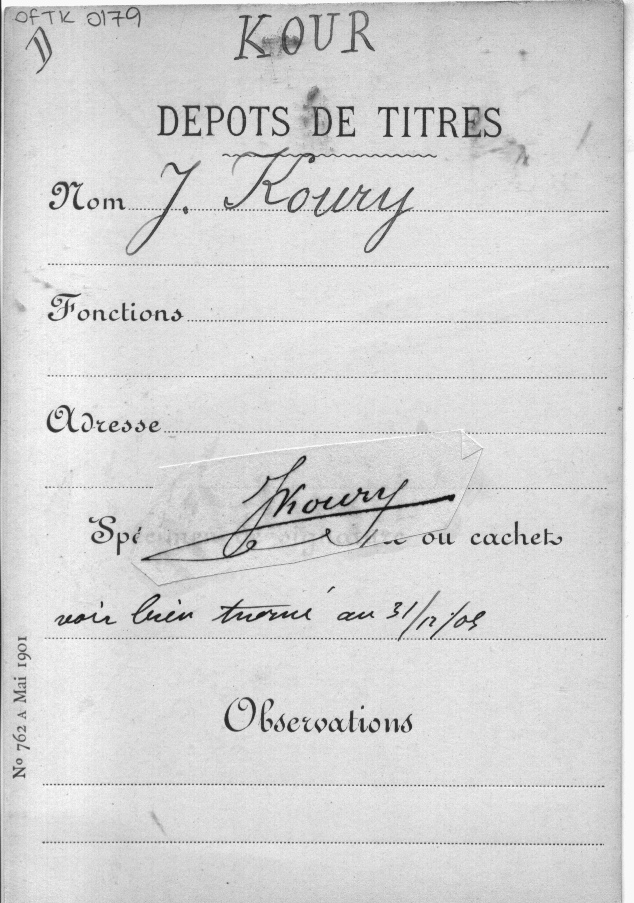 OFTK 0179
D
KOUR
DEPOTS DE TITRES
Nom J. Koury
Fonctions
Adresse
JKoury
Spécimen ou cachet
voir bien au 31/12/05
Observations
No 762 A Mai 1901